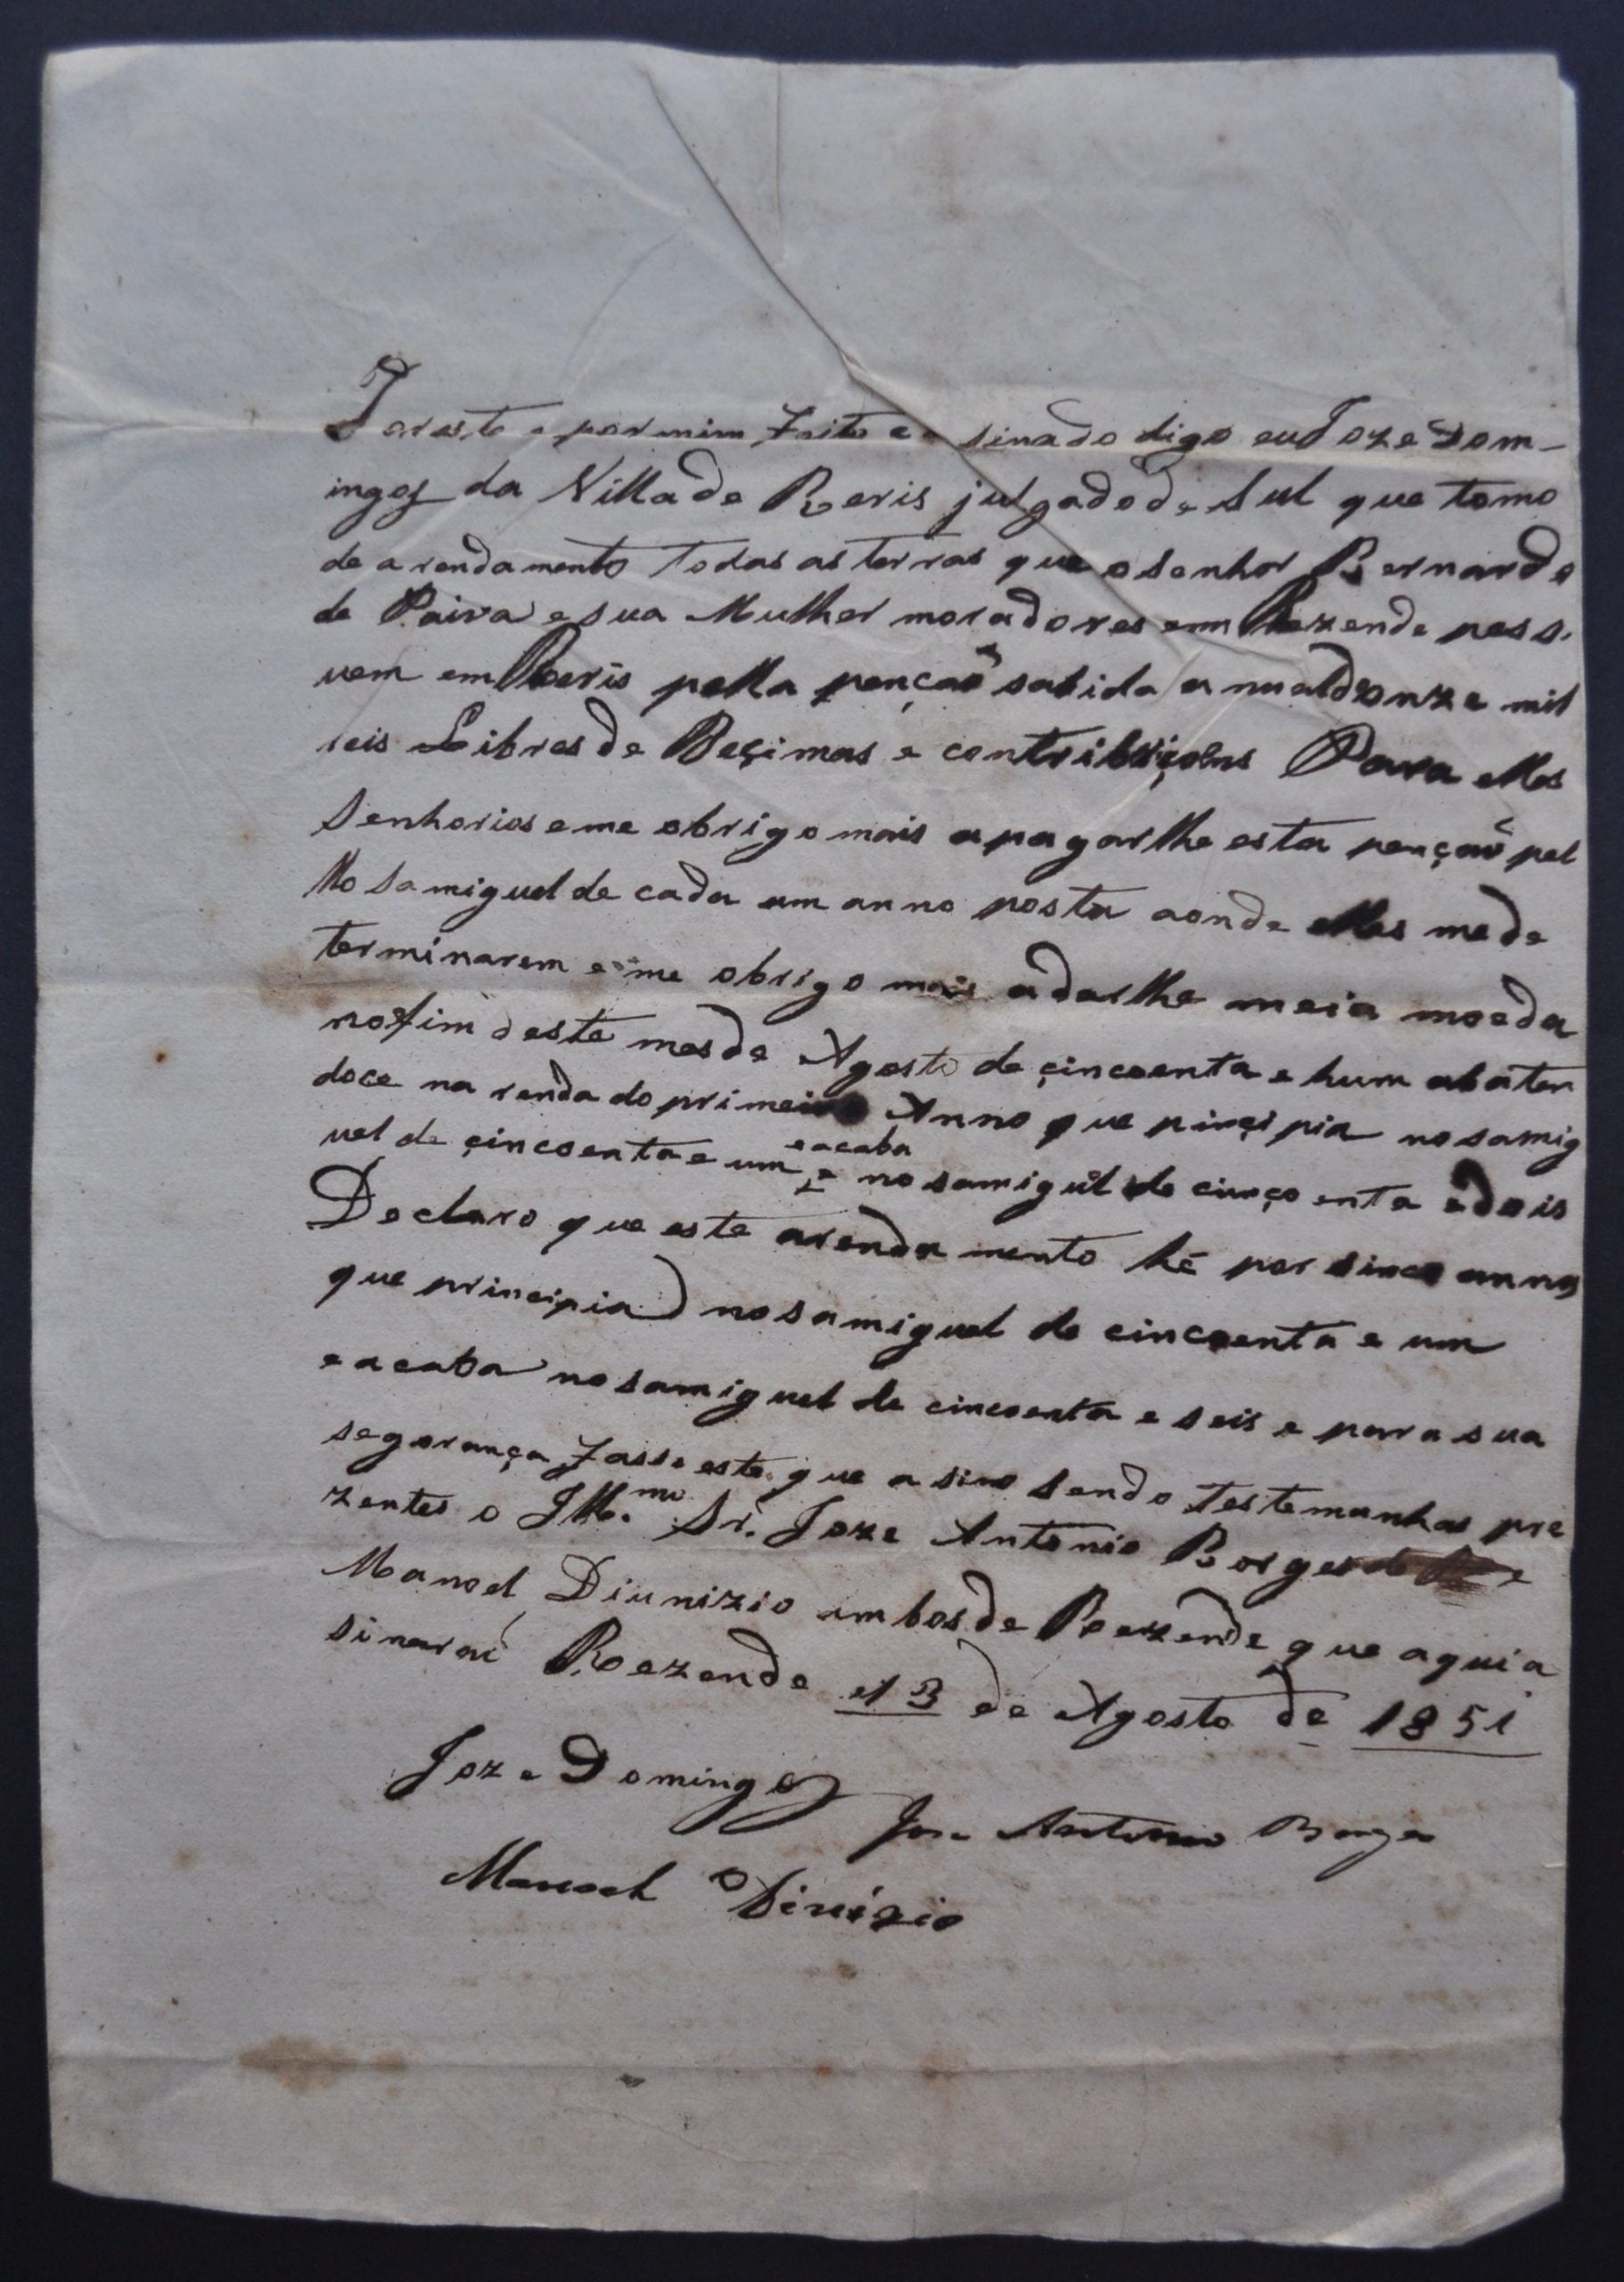 Por este por mim feito e a sinado digo eu Joze Dom-
ingos da Villa de Reris julgado de Sul que tomo
de arendamento todas as terras que o senhor Bernardo
de Paiva e sua Mulher moradores em Rezende poss.
uem em Reris pella pençaõ sabida anual de onze mil
reis Libres de Deçimas e contribuiçoens Para elles
Senhorios e me obrigo mais a pagarlhe esta pençaõ pel
llo Samiguel de cada um anno posta aonde elles me de
terminarem e me obrigo mais a darlhe meia moeda
no fim deste mes de Agosto de çincoenta e hum abaten
doce na renda do primeiro Anno que pinçipia no samig
uel de çincoenta e um e acaba no samiguel de cincoenta e dois
Declaro que este arendamento hé por sinco annos
que principia no samiguel de cincoenta e um
e acaba no samiguel de cincoenta e seis e para sua
segorança fasso este que a sino sendo testemunhas pre
zentes o Illmo. Sr. Joze Antonio Borges e
Manoel Diunizio ambos de Reezende que aqui a
sinaraõ Reezende 13 de Agosto de 1851
Joze Domingos
Jose Antonio Borges
Manoel Dinizio